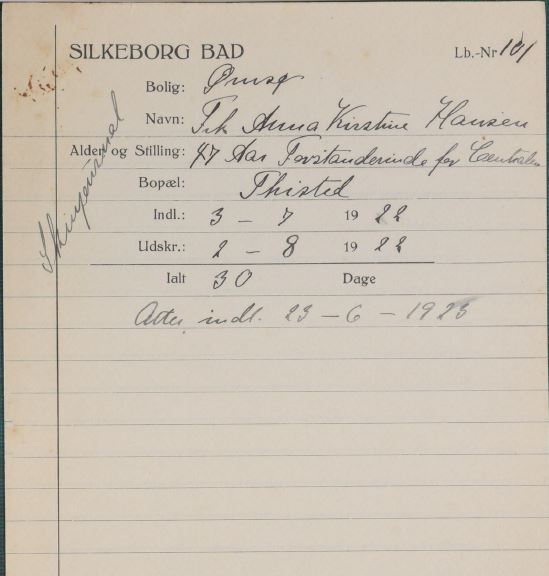 SILKEBORG BAD
Lb.-Nr 101
Bolig: Ørnsø
Navn: Frk Anna Kirstine Hansen
Alder og Stilling: 47 Aar Forstanderinde for Centralen
Bopæl: Thisted
Indl.: 3 - 7 1922
Udskr.: 2 - 8 1922
Ialt 30 Dage
Atter indl. 23 - 6 - 1923